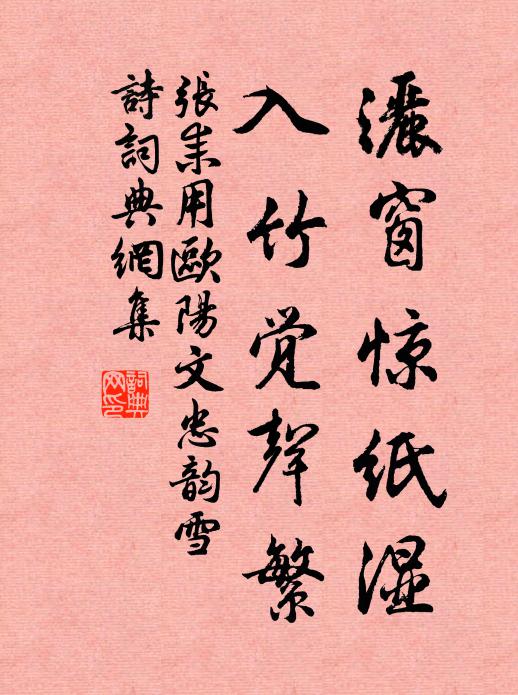 灑窗惊纸湿
入竹觉聲繁
張耒用歐陽文忠韵雪
詩詞典網集
詞典网印